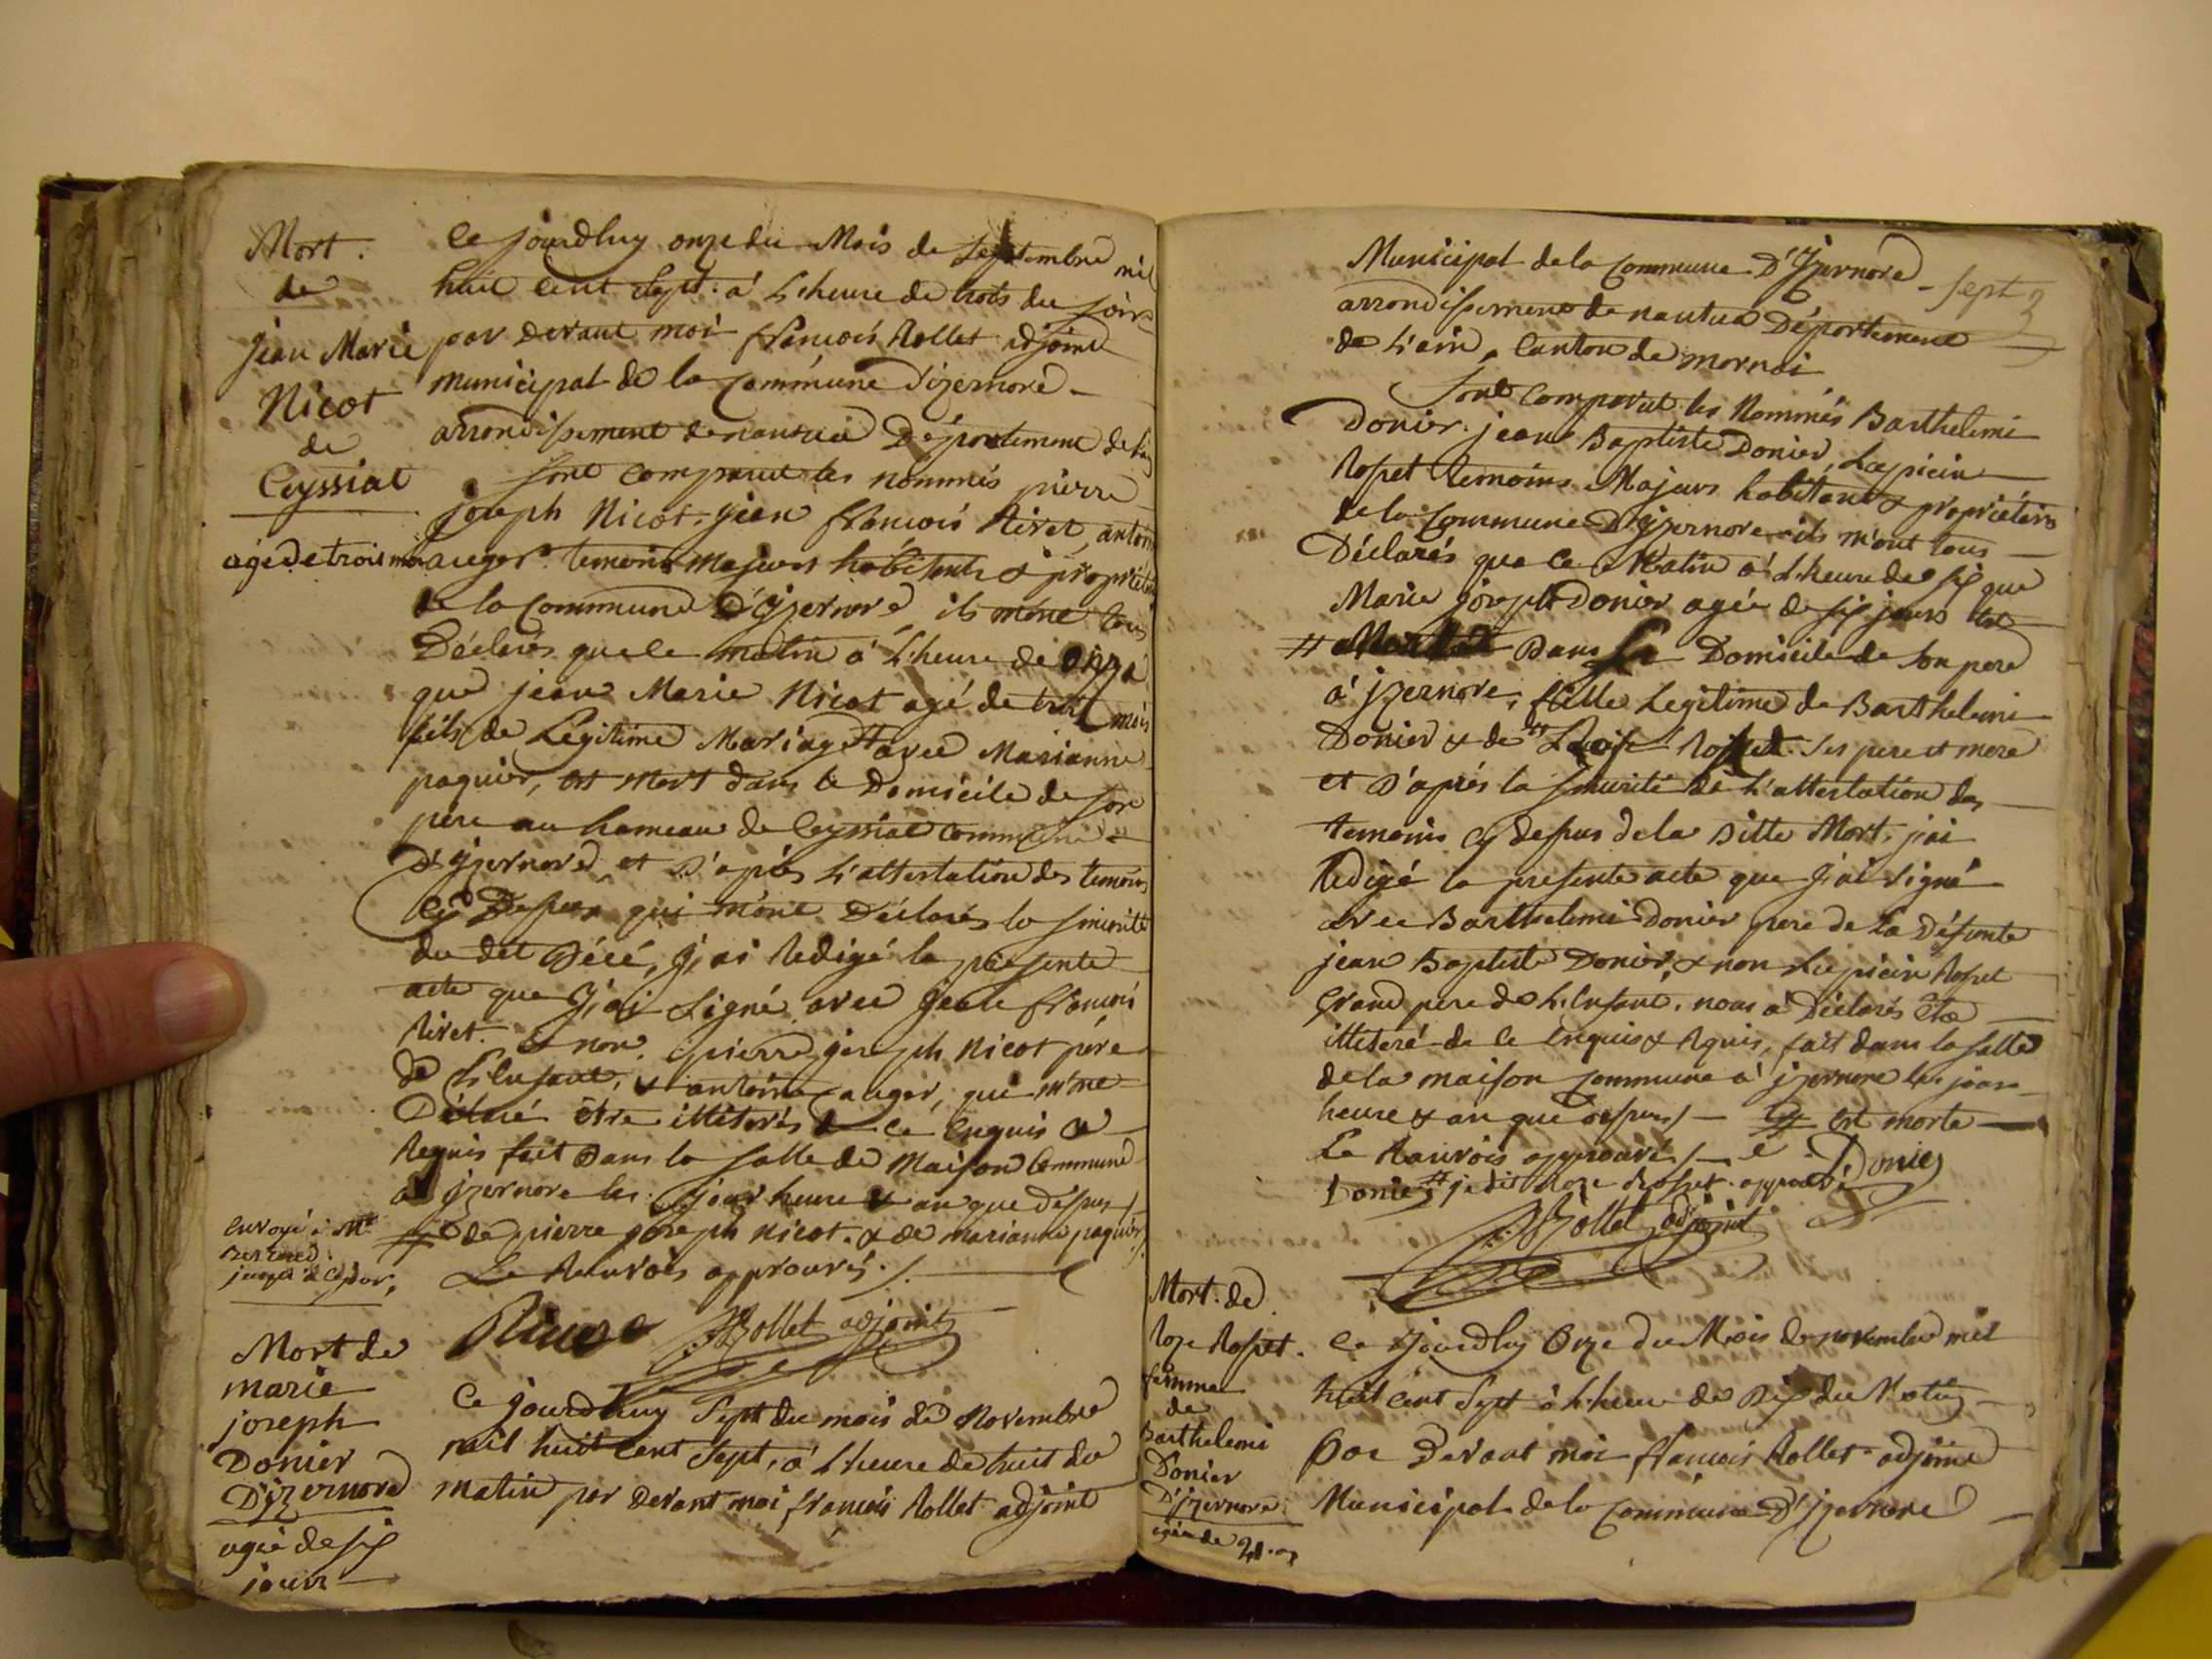 Mort.
de
jean Marie
Nicot
de
Ceyssiat
agé de trois mois
Ce jourdhuy onze du Mois de Septembre mil
huit cent sept. à L'heure de trois du soir
par devant moi françois Rollet adjoint
municipal de la Commune d'izernore
arrondissement de nantua Département de l'ain
sont comparut les nommés pierre
joseph Nicot. jean françois Rivet, antoine
auger temoins majeurs habitents & propriétaires
de la Commune d'Yzernore, ils mont tous
Déclarés que le matin à L'heure de onze
que jean Marie Nicot agé de trois mois
fils de Légitime Mariage # avec Marianne
paquier, est mort dans le Domicile de son
pere au hameau de Ceyssiat commune
D'Yzernore, et D'aprés L'attestation des temoins
Cy Dessus, qui m'ont Déclarés la sinsérité
du dit Décé, J'ai Redigé la présente
acte que J'ai Signé avec jean françois
Rivet. & non pierre joseph Nicot pére
de L'enfant, & antoine auger, qui m'ont
Déclaré être illiterés de ce enquis &
Requis fait Dans la salle de Maison Commune
à Yzernore les jour heure & an que dessus /.
# de pierre joseph nicot. & de marianne paquier /.
Le Renvois approuvés /.
envoyé à Mr
jusqu'à ce jour,
Rivet
F Rollet adjoint
Mort de
marie
joseph
Donier
D'izernore
agée de six
jours
Ce jourdhuy Sept du mois de Novembre
mil huit cent Sept, à L'heure de huit du
matin par devant moi françois Rollet adjoint
Municipal de la Commune D'Yzernore
arrondissement de nantua Département
de L'ain, Canton de mornai
sept 3
Sont Comparut les Nommés Barthelemi
Donier. jean Baptiste Donier, Lupicin
Rosset temoins Majeurs habitants & propriétaires
de la Commune D'Yzernore ils m'ont tous
Déclarés que Ce Matin à L'heure de six que
Marie joseph Donier agée de six jours est
# Dans le Domicile de son pere
à jzernore, fille Legitime de Barthelemi
Donier & de # Rosset ses pere et mere
et D'aprés la sinsérité de L'attestation des
temoins cy dessus de la Ditte Mort, j'ai
Redigé la presente acte que J'ai signé
avec Barthelemi Donier pere de La Défunte
jean Baptiste Donier, & non Lupicin Rosset
Grand pere de L'enfant, nous à Déclarés être
illiteré de ce enquis & Requis, fait dans la salle
de la maison Commune à jzernore les jour
heure & an que dessus /. # est morte
Le Renvois approuvés /.
Donier
Donier
# je dis Roze Rosset. approuvé
F Rollet adjoint
Mort. de
Roze Rosset.
femme
de
Barthelemi
Donier
D'jzernore
agée de
Ce Jourdhuy Onze du Mois de novembre mil
huit cent Sept à L'heure de Dix du Matin
Par Devant moi françois Rollet adjoint
Municipal de la Commune D'jzernore